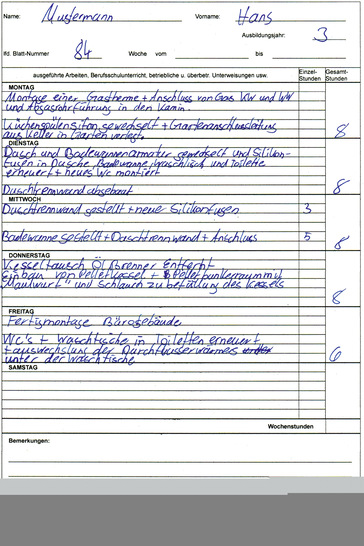 Name: Mustermann Vorname: Hans
Ausbildungsjahr: 3
lfd. Blatt-Nummer 84 Woche vom bis
ausgeführte Arbeiten, Berufsschulunterricht, betriebliche u. überbetr. Unterweisungen usw. Einzel-Stunden Gesamt-Stunden
MONTAG
Montage einer Gastherme + Anschluss von Gas KW und WW
und Abgasrohrführung in den Kamin.
Küchenspülensifon gewechselt + Gartenanschlussleitung
aus Keller in Garten verlegt 8
DIENSTAG
Dusch und Badewannenarmatur gewechselt und Silikon-
fugen in Dusche, Badewanne, Waschtisch und Toilette
erneuert + neues Wc montiert
Duschtrennwand abgebaut 8
MITTWOCH
Duschtrennwand gestellt + neue Silikonfugen 3
Badewanne gestellt + Duschtrennwand + Anschluss 5 8
DONNERSTAG
Kesseltausch Ölbrenner Entfernt
Einbau von Pelletkessel + Pelletbunkerraum mit
"Maulwurf" und Schlauch zu befüllung des Kessels
8
FREITAG
Fertigmontage Bürogebäude
Wc's + Waschtische in Toiletten erneuert
+ auswechslung der Durchlauferwärmers
unter der Waschtische 6
SAMSTAG
Wochenstunden
Bemerkungen: